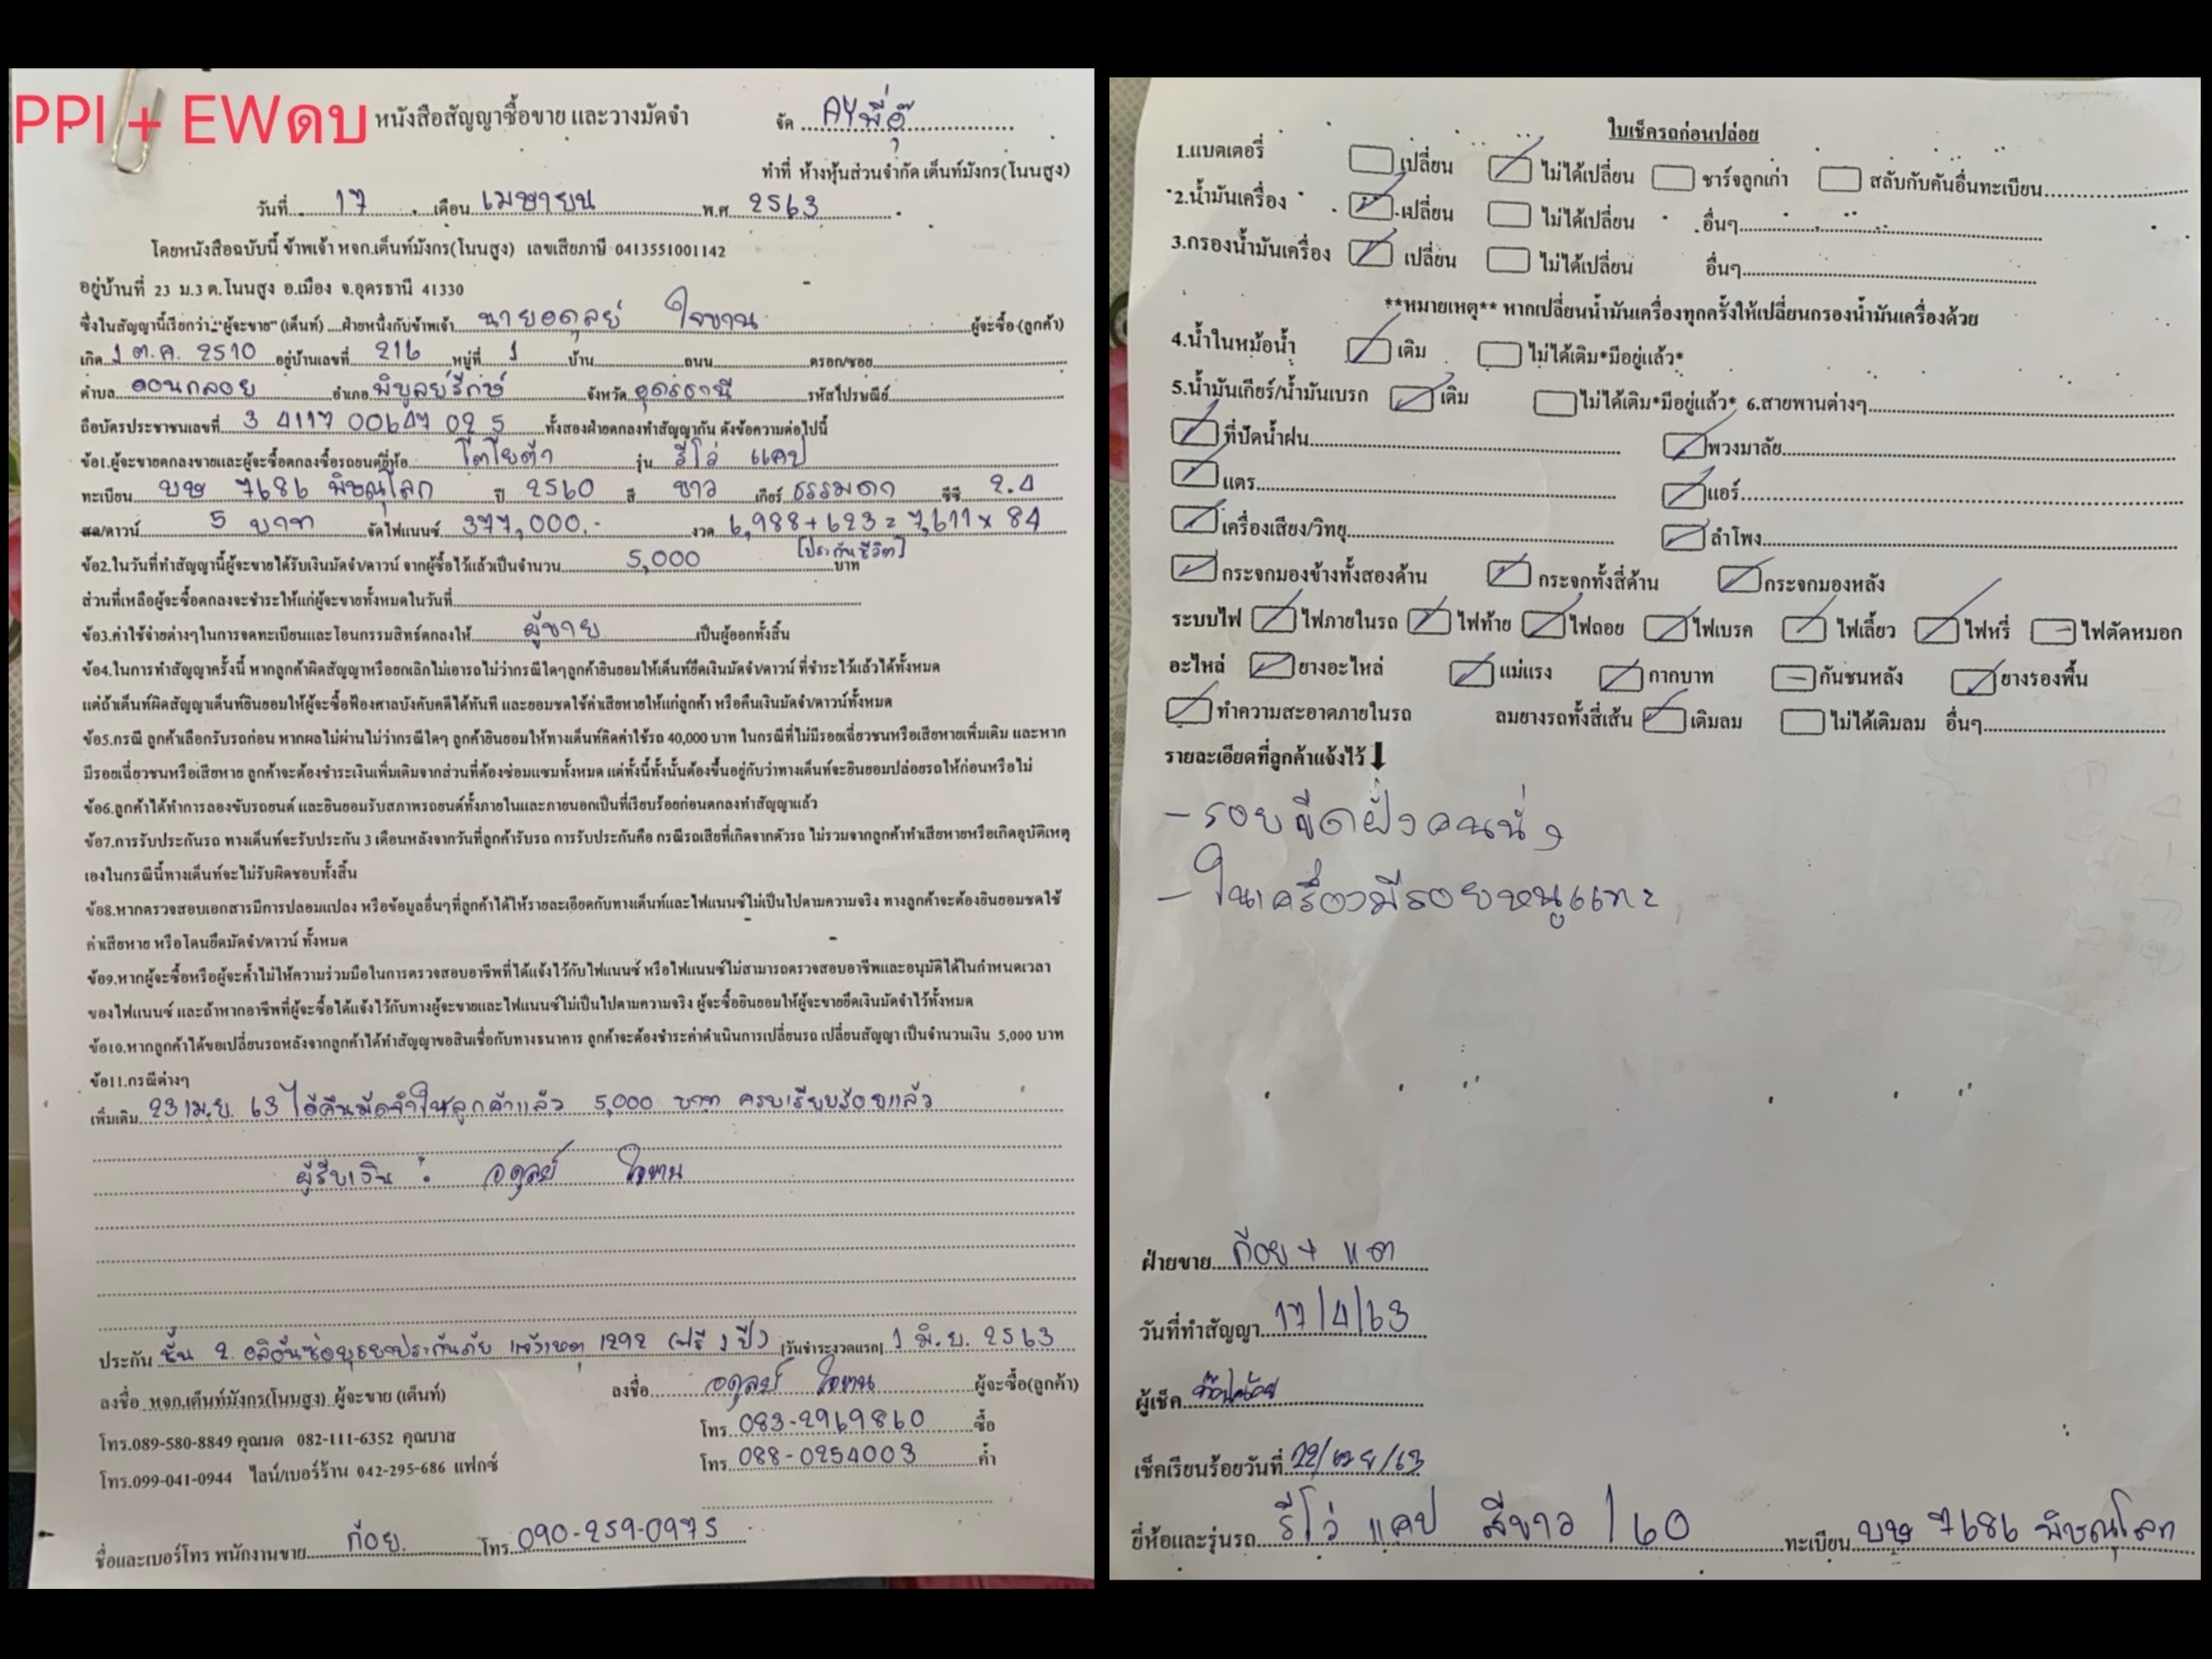 PPI + EWดบ
หนังสือสัญญาซื้อขาย และวางมัดจำ
จัด AYพี่อุ๊
ทำที่ ห้างหุ้นส่วนจำกัด เต็นท์มังกร(โนนสูง)
วันที่ 17 เดือน เมษายน พ.ศ 2563
โดยหนังสือฉบับนี้ ข้าพเจ้า หจก.เต็นท์มังกร(โนนสูง) เลขเสียภาษี 0413551001142
อยู่บ้านที่ 23 ม.3 ต.โนนสูง อ.เมือง จ.อุดรธานี 41330
ซึ่งในสัญญานี้เรียกว่า"ผู้จะขาย" (เต็นท์) ....ฝ่ายหนึ่งกับข้าพเจ้า นายอดุลย์ ผู้จะซื้อ(ลูกค้า)
เกิด 1 ต.ค. 2510 อยู่บ้านเลขที่ 216 หมู่ที่ 1 บ้าน ถนน ตรอก/ซอย
ตำบล ดอนกลอย อำเภอ พิบูลย์รักษ์ จังหวัด อุดรธานี รหัสไปรษณีย์
ถือบัตรประชาชนเลขที่ 3 4117 00647 02 5 ทั้งสองฝ่ายตกลงทำสัญญากัน ดังข้อความต่อไปนี้
ข้อ1.ผู้จะขายตกลงขายและผู้จะซื้อตกลงซื้อรถยนต์ยี่ห้อ โตโยต้า รุ่น รีโว่ แคป
ทะเบียน บษ 7686 พิษณุโลก ปี 2560 สี ขาว เกียร์ ธรรมดา ซีซี 2.4
สด/ดาวน์ 5 บาท จัดไฟแนนซ์ 377,000.- งวด 6,988+623=7,611x 84
[ประกันชีวิต]
ข้อ2.ในวันที่ทำสัญญานี้ผู้จะขายได้รับเงินมัดจำ/ดาวน์ จากผู้ซื้อไว้แล้วเป็นจำนวน 5,000 บาท
ส่วนที่เหลือผู้จะซื้อตกลงจะชำระให้แก่ผู้จะขายทั้งหมดในวันที่
ข้อ3.ค่าใช้จ่ายต่างๆในการจดทะเบียนและโอนกรรมสิทธิ์ตกลงให้ ผู้ขาย เป็นผู้ออกทั้งสิ้น
ข้อ4.ในการทำสัญญาครั้งนี้ หากลูกค้าผิดสัญญาหรือยกเลิกไม่เอารถไม่ว่ากรณีใดๆลูกค้ายินยอมให้เต็นท์ยึดเงินมัดจำ/ดาวน์ ที่ชำระไว้แล้วได้ทั้งหมด
แต่ถ้าเต็นท์ผิดสัญญาเต็นท์ยินยอมให้ผู้จะซื้อฟ้องศาลบังคับคดีได้ทันที และยอมชดใช้ค่าเสียหายให้แก่ลูกค้า หรือคืนเงินมัดจำ/ดาวน์ทั้งหมด
ข้อ5.กรณี ลูกค้าเลือกรับรถก่อน หากผลไม่ผ่านไม่ว่ากรณีใดๆ ลูกค้ายินยอมให้ทางเต็นท์คิดค่าใช้รถ 40,000 บาท ในกรณีที่ไม่มีรอยเฉี่ยวชนหรือเสียหายเพิ่มเติม และหาก
มีรอยเฉี่ยวชนหรือเสียหาย ลูกค้าจะต้องชำระเงินเพิ่มเติมจากส่วนที่ต้องซ่อมแซมทั้งหมด แต่ทั้งนี้ทั้งนั้นต้องขึ้นอยู่กับว่าทางเต็นท์จะยินยอมปล่อยรถให้ก่อนหรือไม่
ข้อ6.ลูกค้าได้ทำการลองขับรถยนต์ และยินยอมรับสภาพรถยนต์ทั้งภายในและภายนอกเป็นที่เรียบร้อยก่อนตกลงทำสัญญาแล้ว
ข้อ7.การรับประกันรถ ทางเต็นท์จะรับประกัน 3 เดือนหลังจากวันที่ลูกค้ารับรถ การรับประกันคือ กรณีรถเสียที่เกิดจากตัวรถ ไม่รวมจากลูกค้าทำเสียหายหรือเกิดอุบัติเหตุ
เองในกรณีนี้ทางเต็นท์จะไม่รับผิดชอบทั้งสิ้น
ข้อ8.หากตรวจสอบเอกสารมีการปลอมแปลง หรือข้อมูลอื่นๆที่ลูกค้าได้ให้รายละเอียดกับทางเต็นท์และไฟแนนซ์ไม่เป็นไปตามความจริง ทางลูกค้าจะต้องยินยอมชดใช้
ค่าเสียหาย หรือโดนยึดมัดจำ/ดาวน์ ทั้งหมด
ข้อ9.หากผู้จะซื้อหรือผู้จะค้ำไม่ให้ความร่วมมือในการตรวจสอบอาชีพที่ได้แจ้งไว้กับไฟแนนซ์ หรือไฟแนนซ์ไม่สามารถตรวจสอบอาชีพและอนุมัติได้ในกำหนดเวลา
ของไฟแนนซ์ และถ้าหากอาชีพที่ผู้จะซื้อได้แจ้งไว้กับทางผู้จะขายและไฟแนนซ์ไม่เป็นไปตามความจริง ผู้จะซื้อยินยอมให้ผู้จะขายยึดเงินมัดจำไว้ทั้งหมด
ข้อ10.หากลูกค้าได้ขอเปลี่ยนรถหลังจากลูกค้าได้ทำสัญญาขอสินเชื่อกับทางธนาคาร ลูกค้าจะต้องชำระค่าดำเนินการเปลี่ยนรถ เปลี่ยนสัญญา เป็นจำนวนเงิน 5,000 บาท
ข้อ11.กรณีต่างๆ
เพิ่มเติม 23 เม.ย. 63 ได้คืนมัดจำให้ลูกค้าแล้ว 5,000 บาท ครบเรียบร้อยแล้ว
ผู้รับเงิน : อดุลย์
ประกัน ชั้น 2. อลิอันซ์อยุธยาประกันภัย แจ้งเหตุ 1292 (ฟรี 1 ปี) [วันชำระงวดแรก] 1 มิ.ย. 2563
ลงชื่อ หจก.เต็นท์มังกร(โนนสูง) ผู้จะขาย (เต็นท์) ลงชื่อ อดุลย์ ผู้จะซื้อ(ลูกค้า)
โทร.089-580-8849 คุณมด 082-111-6352 คุณบาส โทร. 083-2969860 ซื้อ
โทร.099-041-0944 ไลน์/เบอร์ร้าน 042-295-686 แฟกซ์ โทร. 088-0254003 ค้ำ
ชื่อและเบอร์โทร พนักงานขาย ก้อย. โทร. 090-259-0975
ใบเช็ครถก่อนปล่อย
1.แบตเตอรี่ เปลี่ยน ไม่ได้เปลี่ยน ชาร์จลูกเก่า สลับกับคันอื่นทะเบียน
2.น้ำมันเครื่อง เปลี่ยน ไม่ได้เปลี่ยน อื่นๆ
3.กรองน้ำมันเครื่อง เปลี่ยน ไม่ได้เปลี่ยน อื่นๆ
**หมายเหตุ** หากเปลี่ยนน้ำมันเครื่องทุกครั้งให้เปลี่ยนกรองน้ำมันเครื่องด้วย
4.น้ำในหม้อน้ำ เติม ไม่ได้เติม*มีอยู่แล้ว*
5.น้ำมันเกียร์/น้ำมันเบรก เติม ไม่ได้เติม*มีอยู่แล้ว* 6.สายพานต่างๆ
ที่ปัดน้ำฝน พวงมาลัย
แตร แอร์
เครื่องเสียง/วิทยุ ลำโพง
กระจกมองข้างทั้งสองด้าน กระจกทั้งสี่ด้าน กระจกมองหลัง
ระบบไฟ ไฟภายในรถ ไฟท้าย ไฟถอย ไฟเบรค ไฟเลี้ยว ไฟหรี่ ไฟตัดหมอก
อะไหล่ ยางอะไหล่ แม่แรง กากบาท กันชนหลัง ยางรองพื้น
ทำความสะอาดภายในรถ ลมยางรถทั้งสี่เส้น เติมลม ไม่ได้เติมลม อื่นๆ
รายละเอียดที่ลูกค้าแจ้งไว้
- รอยขีดฝั่งคนนั่ง
- ในเครื่องมีรอยหนูแทะ
ฝ่ายขาย ก้อย + แตา
วันที่ทำสัญญา 17/4/63
ผู้เช็ค
เช็คเรียบร้อยวันที่ 22/เมย/63
ยี่ห้อและรุ่นรถ รีโว่ แคป สีขาว / 60 ทะเบียน บษ 7686 พิษณุโลก